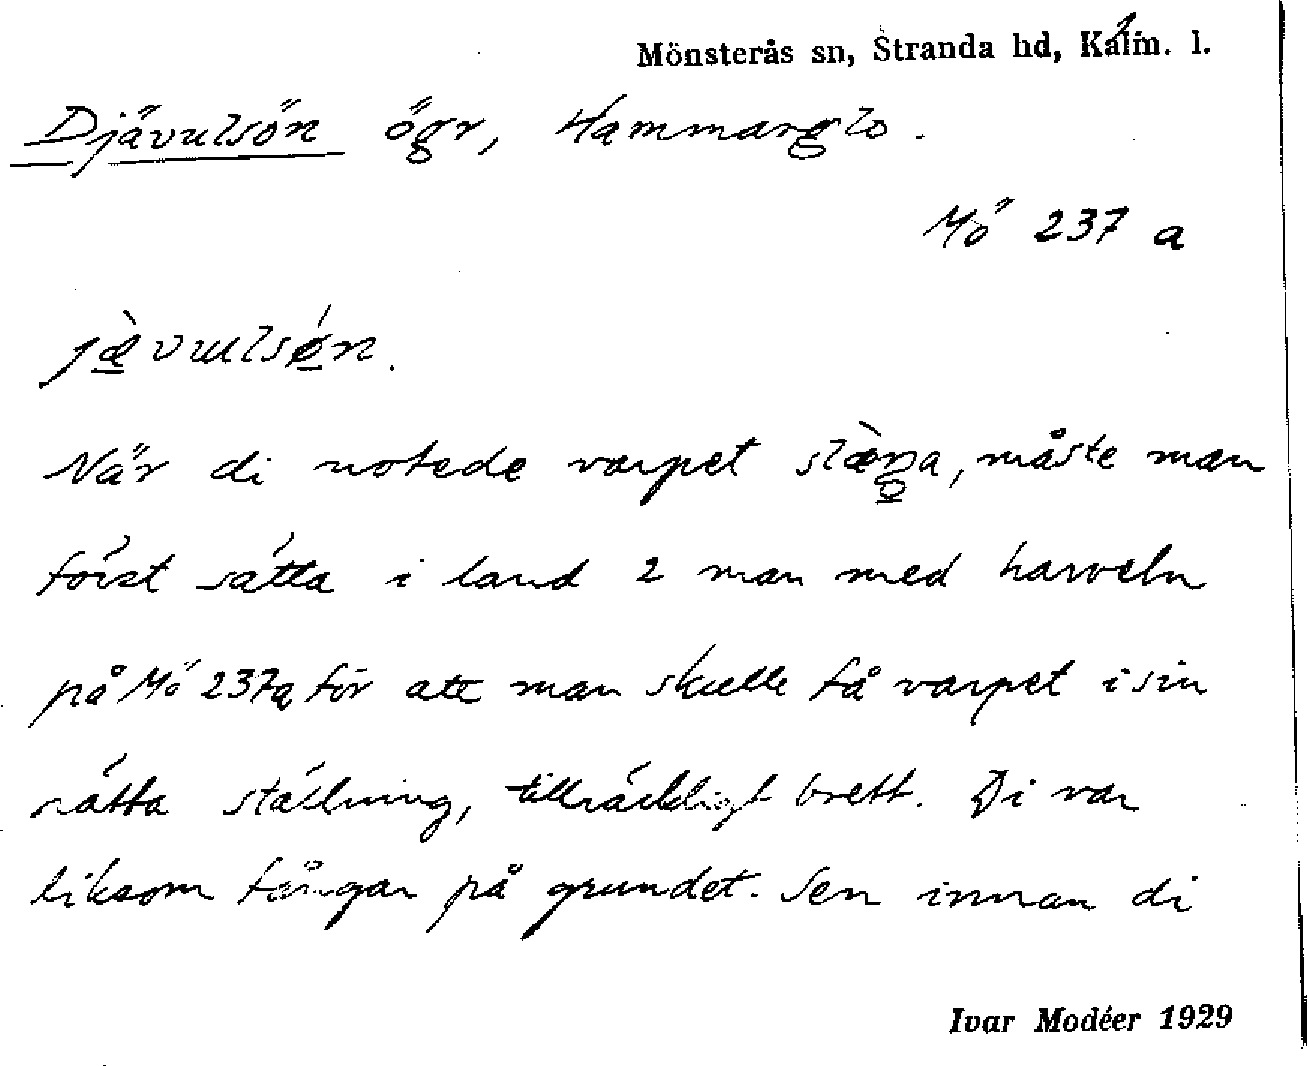 Mönsterås sn, Stranda hd, Kalm. l.
Djävulsön ögr, Hammarglo.
Mö 237 a
jæ̀vulsǿn.
När di notede varpet slæ̀ŋa, måste man
först sätta i land 2 man med harveln
på Mö 237a för att man skulle få varpet i sin
rätta ställning, tillräckligt brett. Di var
liksom fångar på grundet. Sen innan di
Ivar Modéer 1929